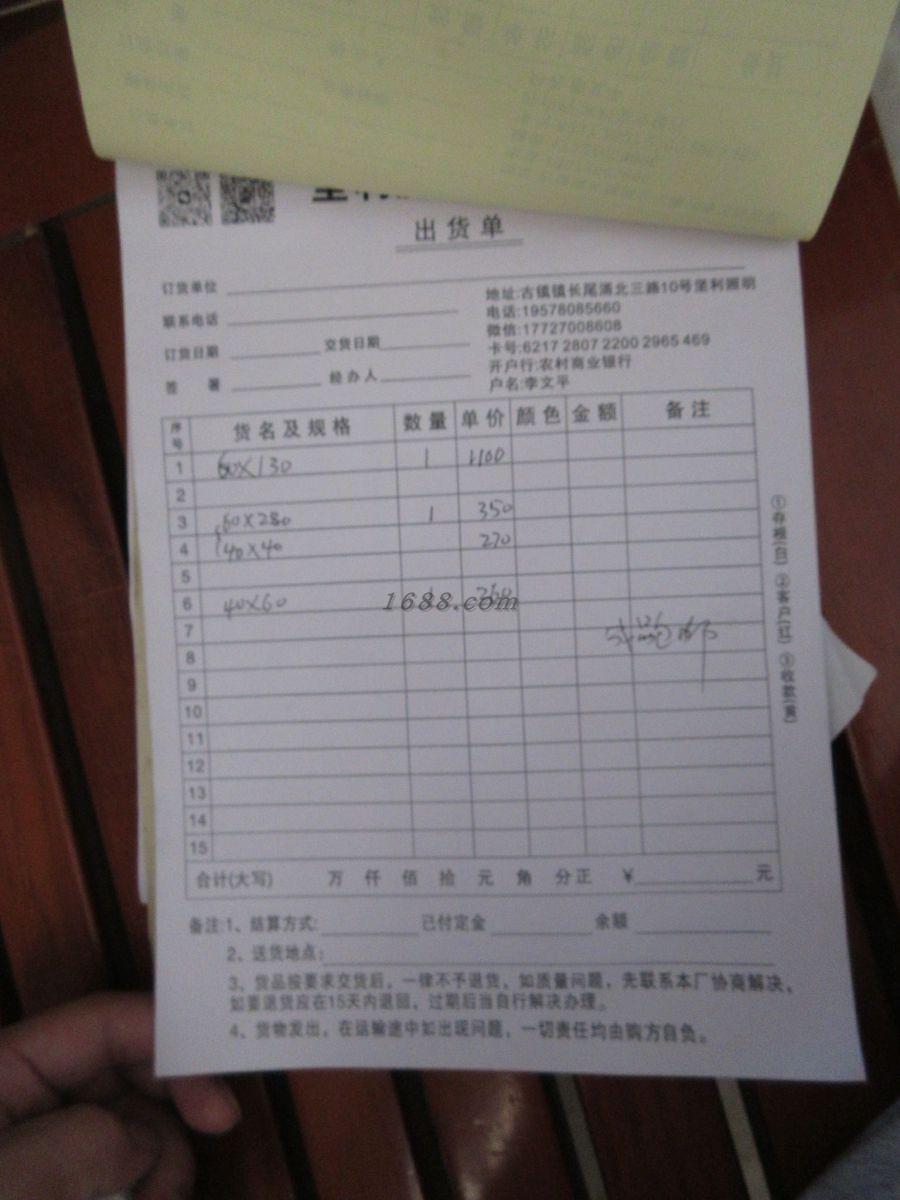 出货单
订货单位
联系电话
订货日期 交货日期
签 署 经办人
地址:古镇镇长尾浦北三路10号坚利照明
电话:19578085660
微信:17727008608
卡号:6217 2807 2200 2965 469
开户行:农村商业银行
户名:李文平
序号 货名及规格 数量 单价 颜色 金额 备注
1 60×130 1 1100
2
3 60×280 1 350
4 40×40 220
5
6 40×60 260
1688.com
7
8
9
10
11
12
13
14
15
合计(大写) 万 仟 佰 拾 元 角 分正 ¥ 元
①存根(白) ②客户(红) ③收款(黄)
备注:1、结算方式: 已付定金 余额
2、送货地点:
3、货品按要求交货后,一律不予退货,如质量问题,先联系本厂协商解决,
如要退货应在15天内退回,过期后当自行解决办理。
4、货物发出,在运输途中如出现问题,一切责任均由购方自负。